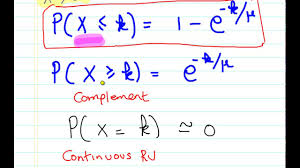 P(X ≤ k) = 1 - e^{-k/μ}
P(X ≥ k) = e^{-k/μ}
Complement
P(X = k) ≃ 0
Continuous RV